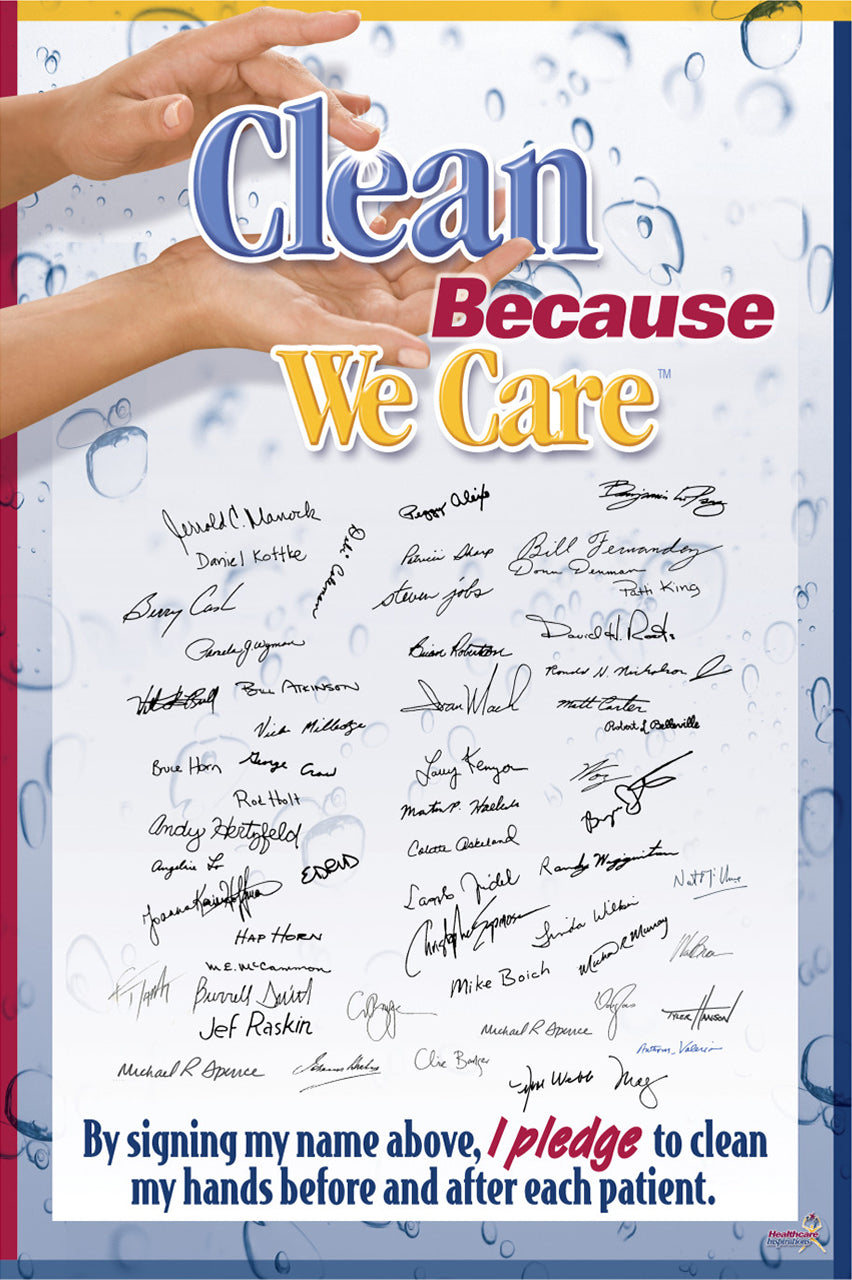 Clean
Because
We Care™
Jerrold C. Manock
Peggy Alexio
Daniel Kottke
Debi Coleman
Patricia Sharp
Bill Fernandez
Donn Denman
Patti King
Berry Cash
steven jobs
Pamela J. Wyman
Brian Robertson
David H. Roots
Ronald H. Nicholson Jr
Bill Atkinson
Joan Mack
Matt Carter
Robert L Belleville
Vicki Milledge
Bruce Horn
George Crow
Larry Kenyon
Woz
Rod Holt
Martin P. Haeberli
Andy Hertzfeld
Colette Askeland
Angeline Lo
Randy Wigginton
Joanna Karin Hoffman
Hap Horn
Christopher Espinosa
Linda Wilkin
M.E. McCammon
Mike Boich
Michael R Murray
Burrell Smith
Jef Raskin
Michael R Spence
Tyler Hanson
Anthony Valerio
Michael R Spence
Webb
By signing my name above, I pledge to clean
my hands before and after each patient.
Healthcare
Inspirations
Healthcare
Inspirations